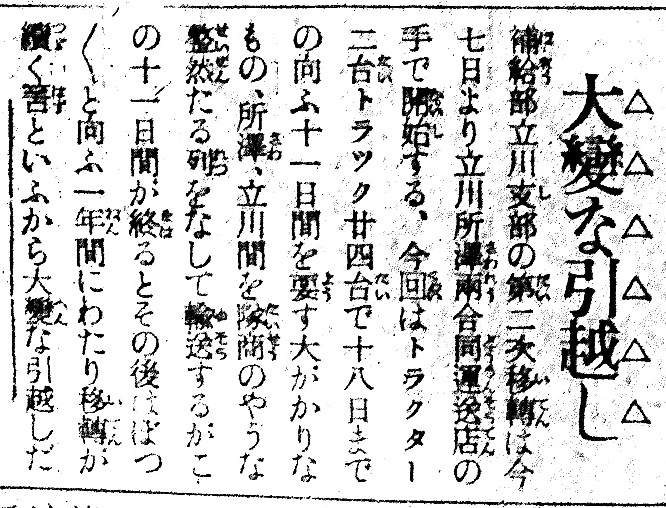 △△△△△△
大變な引越し
補給部立川支部の第二次移轉は今
七日より立川所澤兩合同運送店の
手で開始する、今回はトラクター
二台トラック廿四台で十八日まで
の向ふ十一日間を要す大がかりな
もの、所澤、立川間を隊商のやうな
整然たる列をなして輸送するがこ
の十一日間が終るとその後はぼつ
〱と向ふ一年間にわたり移轉が
續く筈といふから大變な引越しだ